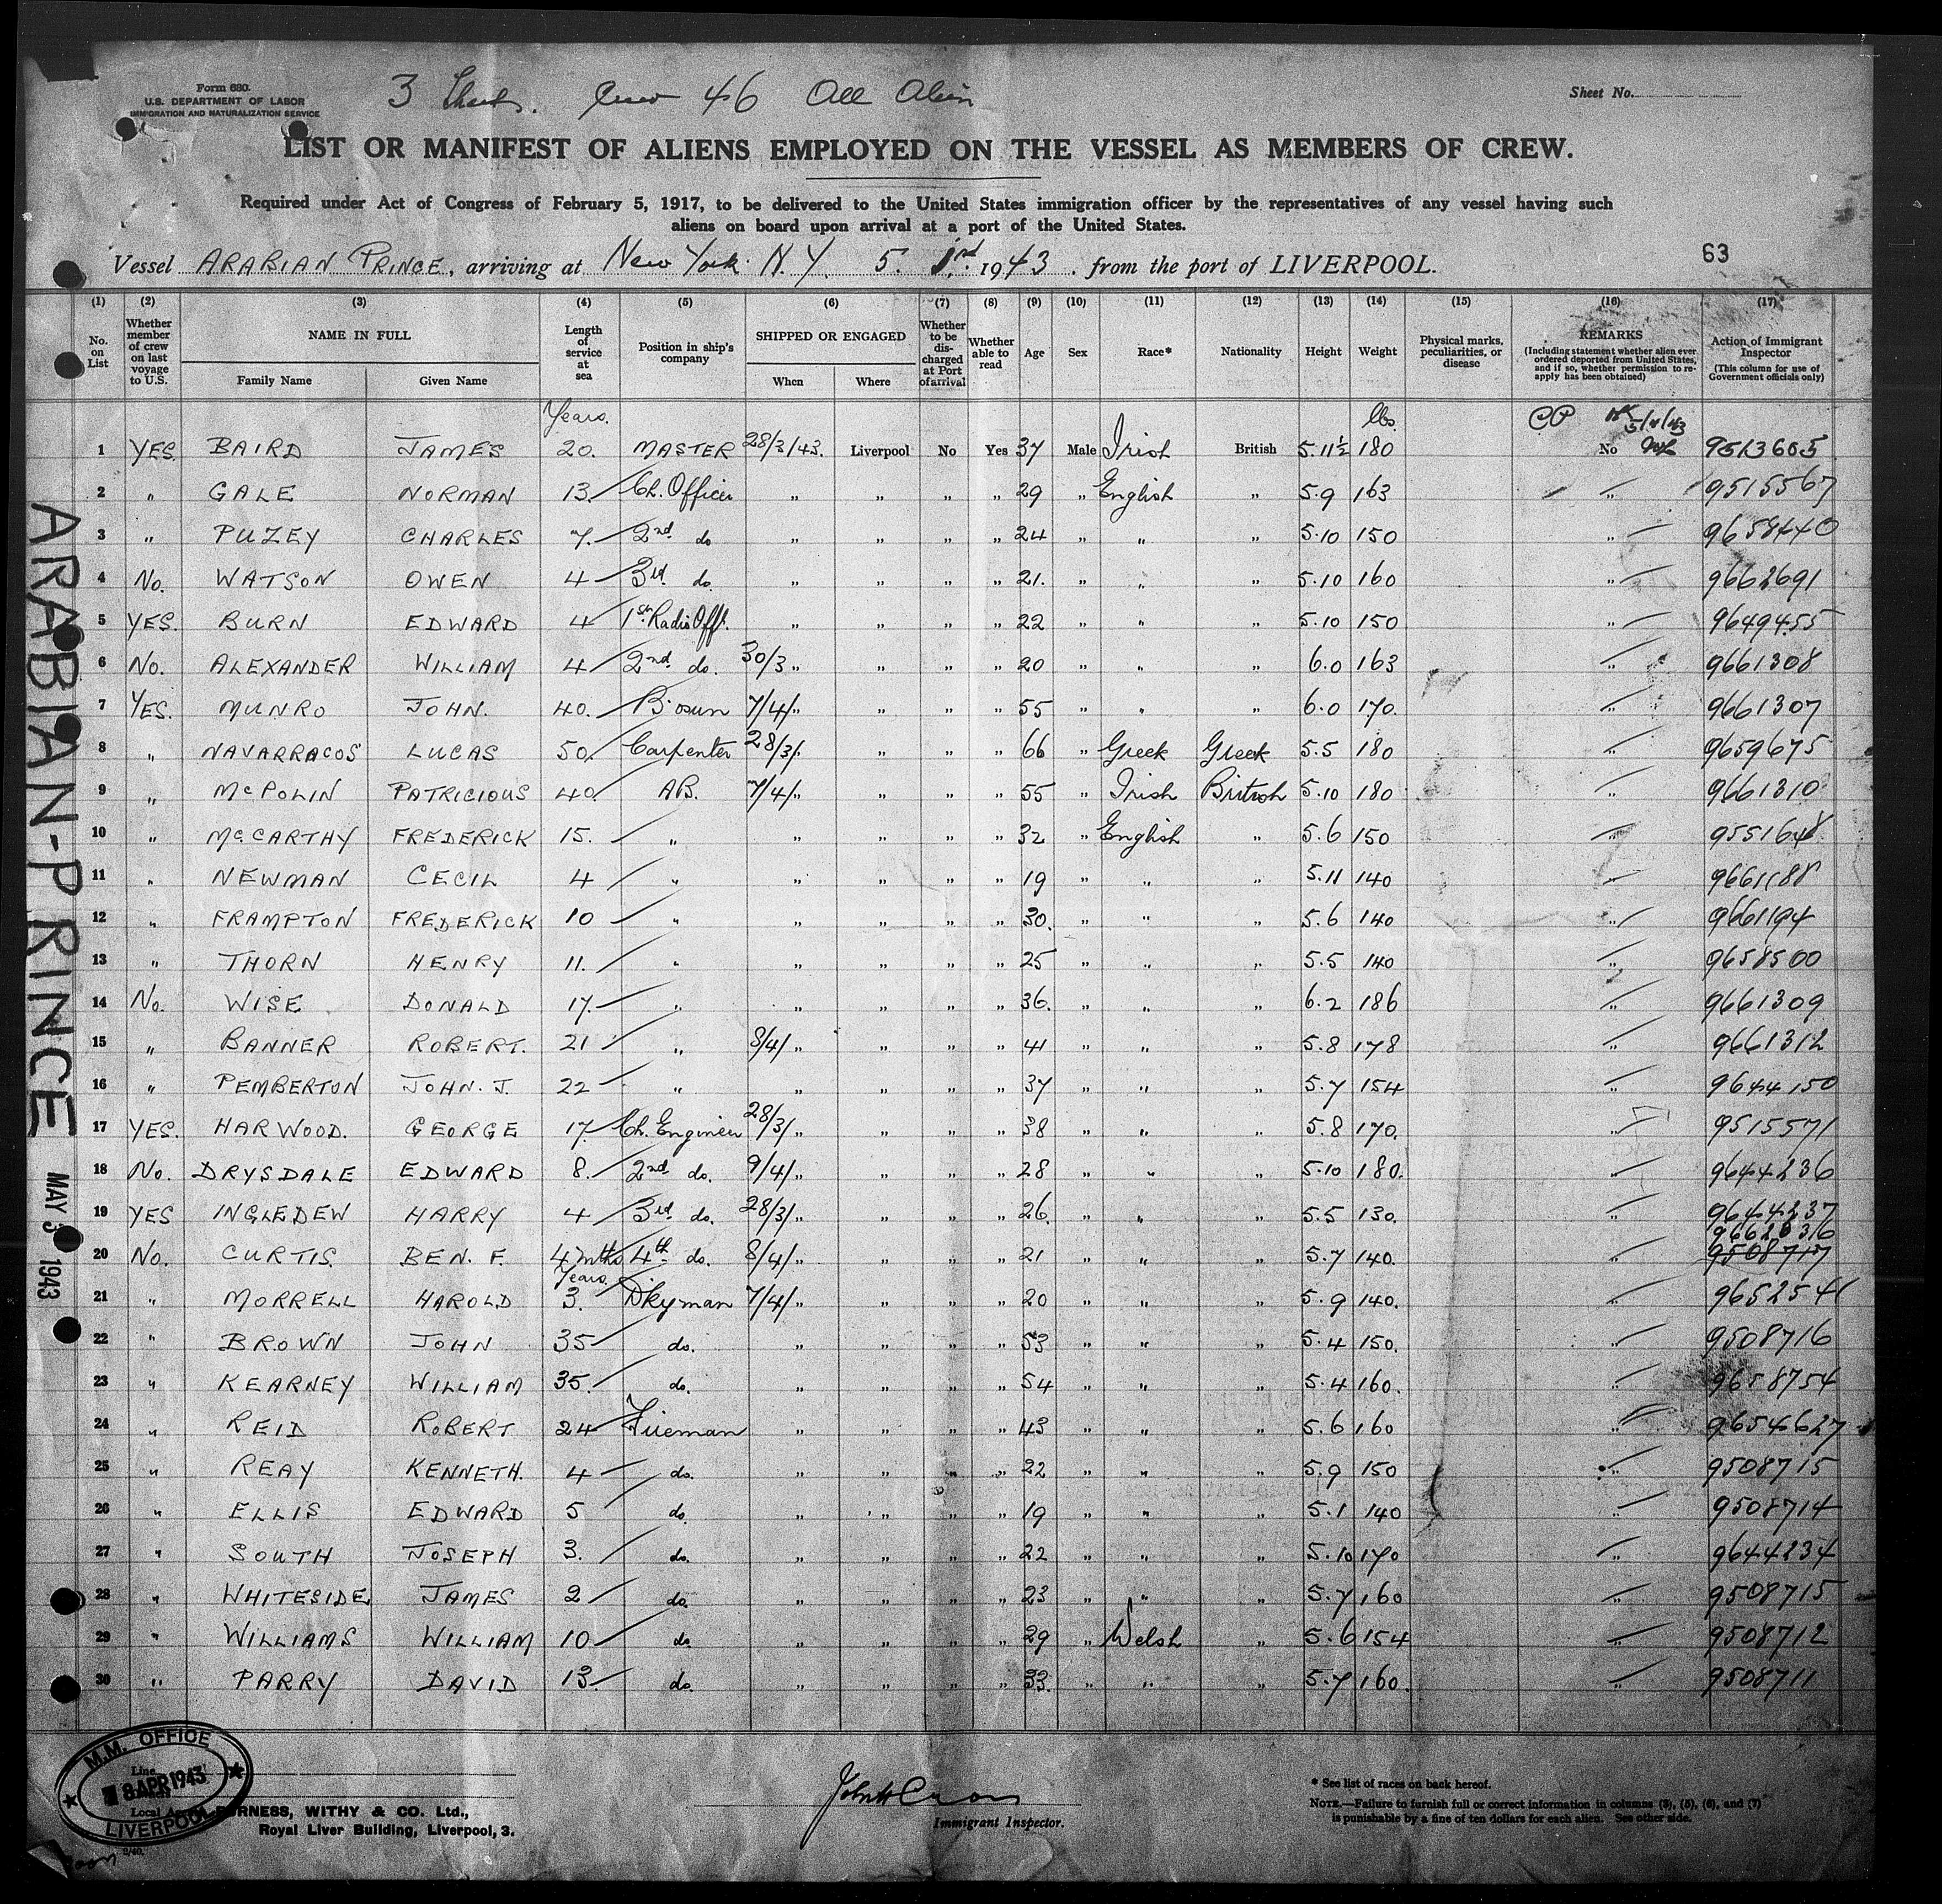 3 Sheets. Crew 46 All Alien
Form 680.
U.S. DEPARTMENT OF LABOR
IMMIGRATION AND NATURALIZATION SERVICE
Sheet No.
LIST OR MANIFEST OF ALIENS EMPLOYED ON THE VESSEL AS MEMBERS OF CREW.
Required under Act of Congress of February 5, 1917, to be delivered to the United States immigration officer by the representatives of any vessel having such
aliens on board upon arrival at a port of the United States.
63
Vessel ARABIAN PRINCE, arriving at New York N.Y. 5. 1943. from the port of LIVERPOOL.
(1) (2) (3) (4) (5) (6) (7) (8) (9) (10) (11) (12) (13) (14) (15) (16) (17)
No. on List
Whether member of crew on last voyage to U.S.
NAME IN FULL
Family Name Given Name
Length of service at sea
Position in ship's company
SHIPPED OR ENGAGED
When Where
Whether to be discharged at Port of arrival
Whether able to read
Age
Sex
Race*
Nationality
Height
Weight
Physical marks, peculiarities, or disease
REMARKS
(Including statement whether alien ever ordered deported from United States, and if so, whether permission to re-apply has been obtained)
Action of Immigrant Inspector
(This column for use of Government officials only)
Years. lbs.
1 YES. BAIRD JAMES 20. MASTER 28/3/43. Liverpool No Yes 37 Male Irish British 5.11½ 180 No 9513605
2 " GALE NORMAN 13. Ch. Officer " " " " 29 " English " 5.9 163 " 9515567
3 " PUZEY CHARLES 7. 2nd do " " " " 24 " " " 5.10 150 " 9658440
4 No. WATSON OWEN 4 3rd do. " " " " 21. " " " 5.10 160 " 9662691
5 YES. BURN EDWARD 4 1st Radio Off. " " " " 22 " " " 5.10 150 " 9649455
6 No. ALEXANDER WILLIAM 4 2nd do. 30/3 " " " " 20 " " " 6.0 163 " 9661308
7 YES. MUNRO JOHN. 40. Bosun 7/4/" " " " 55 " " " 6.0 170. " 9661307
8 " NAVARRACOS LUCAS 50. Carpenter 28/3/. " " " 66 " Greek Greek 5.5 180 " 9659675
9 " McPOLIN PATRICIOUS 40. AB. 7/4/" " " " 55 " Irish British 5.10 180 " 9661310
10 " McCARTHY FREDERICK 15. " " " " " 32 " English " 5.6 150 " 955164
11 " NEWMAN CECIL 4 " " " " " 19 " " " 5.11 140 " 9661188
12 " FRAMPTON FREDERICK 10 " " " " " 30. " " " 5.6 140 " 9661194
13 " THORN HENRY 11. " " " " " 25 " " " 5.5 140 " 9658500
14 No. WISE DONALD 17. " " " " " 36. " " " 6.2 186 " 9661309
15 " BANNER ROBERT. 21 " 8/4/" " " " 41 " " " 5.8 178 " 9661312
16 " PEMBERTON JOHN. J. 22 " " " " " 37 " " " 5.7 154 " 9644150
17 YES. HARWOOD. GEORGE 17. Ch. Engineer 28/3/" " " " 38 " " " 5.8 170. " 9515571
18 No. DRYSDALE EDWARD 8. 2nd do. 9/4/" " " " 28 " " " 5.10 180. " 9644236
19 YES INGLEDEW HARRY 4 3rd do. 28/3/" " " " 26. " " " 5.5 130. " 9644237
9662316
20 No. CURTIS. BEN. F. 4 mths 4th do. 8/4/" " " " 21 " " " 5.7 140. " 9508717
Years.
21 " MORRELL HAROLD 3. Dkyman 7/4/" " " " 20 " " " 5.9 140. " 9652541
22 " BROWN JOHN 35 do. " " " " 53 " " " 5.4 150. " 9508716
23 " KEARNEY WILLIAM 35. do. " " " " 54 " " " 5.4 160. " 9658754
24 " REID ROBERT 24 Fireman " " " " 43 " " " 5.6 160 " 9654627
25 " REAY KENNETH. 4 do. " " " " 22 " " " 5.9 150 " 9508715
26 " ELLIS EDWARD 5 do. " " " " 19 " " " 5.1 140 " 9508714
27 " SOUTH JOSEPH 3. do. " " " " 22 " " " 5.10 170 " 9644234
28 " WHITESIDE JAMES 2 do. " " " " 23 " " " 5.7 160 " 9508715
29 " WILLIAMS WILLIAM 10 do. " " " " 29 " Welsh " 5.6 154 " 9508712
30 " PARRY DAVID 13. do. " " " " 33. " " " 5.7 160. " 9508711
ARABIAN-PRINCE
MAY 5 1943
M.M. OFFICE
8 APR 1943
LIVERPOOL
Line
FURNESS, WITHY & CO. Ltd.,
Royal Liver Building, Liverpool, 3.
2/40.
Immigrant Inspector.
* See list of races on back hereof.
NOTE.—Failure to furnish full or correct information in columns (3), (5), (6), and (7)
is punishable by a fine of ten dollars for each alien. See other side.